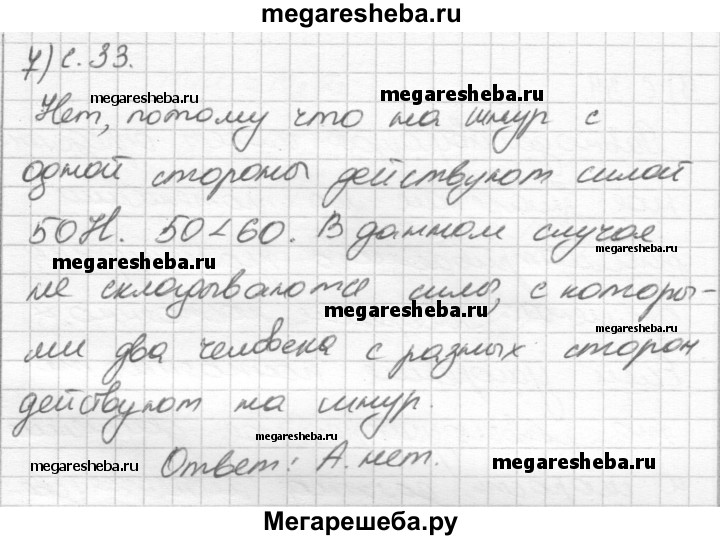 megaresheba.ru
7) с. 33.
megaresheba.ru megaresheba.ru
Нет, потому что на шнур с
одной стороны действуют силой
50Н. 50 < 60. В данном случае
megaresheba.ru megaresheba.ru
не складываются силы, с которы-
megaresheba.ru megaresheba.ru
ми два человека с разных сторон
действуют на шнур.
megaresheba.ru
Ответ: А. нет.
megaresheba.ru megaresheba.ru
Мегарешеба.ру